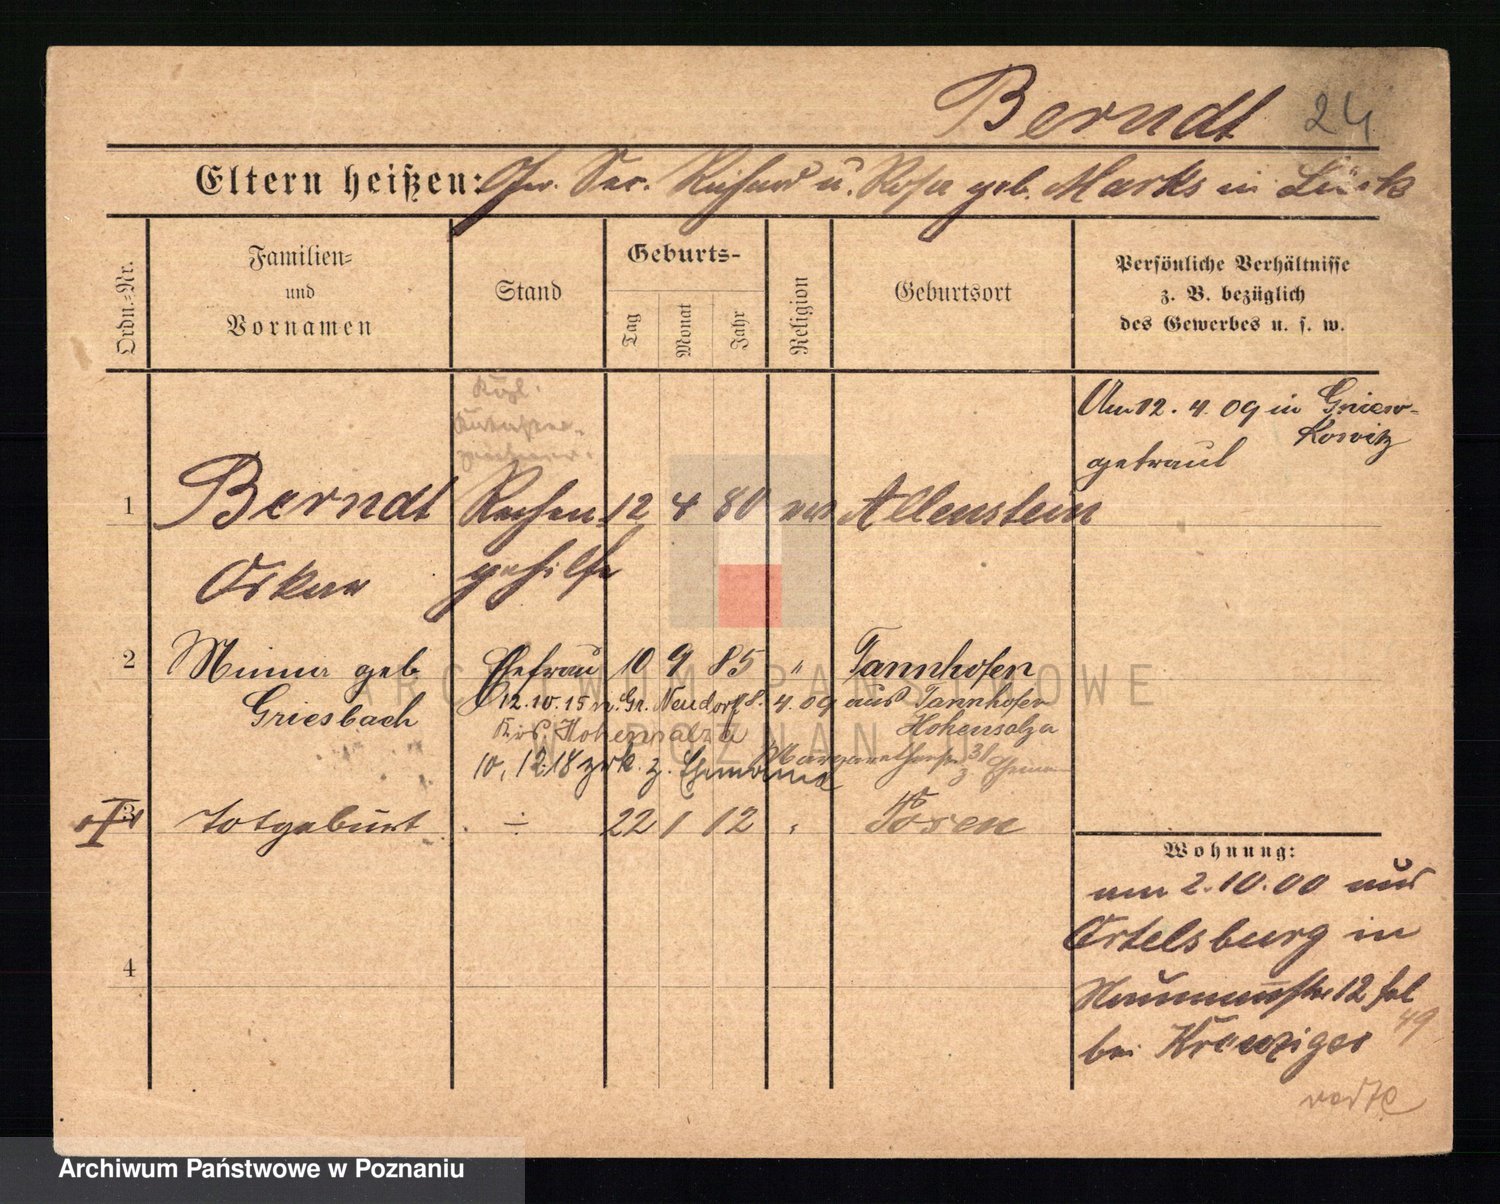 Berndt 24
Eltern heißen: Ger. Sec. Richard u. Rosa geb. Marks in Lyck
Ordn.-Nr.
Familien-
und
Vornamen
Stand
Geburts-
Tag
Monat
Jahr
Religion
Geburtsort
Persönliche Verhältnisse
z. B. bezüglich
des Gewerbes u. s. w.
Kgl.
Kataster-
zeichner.
Am 12. 4. 09 in Gniew-
kowitz
getraut
1 Berndt Rechen- 12 4 80 ev Allenstein
Oskar gehilfe
2 Minna geb Ehefrau 10 9 85 " Tannhofen
Griesbach 12.10.15 n. Gr. Neudorf 8. 4. 09 aus Tannhofen
Krs. Hohensalza Hohensalza
10. 12 18 zrk. z. Ehemann Margarethenstr 31
z Ehemann
3 Totgeburt ÷ 22 1 12 " Posen
4
Wohnung:
am 2.10.00 aus
Ortelsburg in
Naumannstr 12
bei Krenziger 49
ARCHIWUM PAŃSTWOWE
W POZNANIU
Archiwum Państwowe w Poznaniu